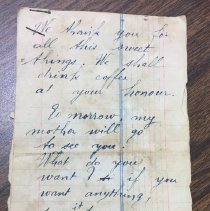 We thank you for
all this sweet
things. We shall
drink coffee
at your honour.
To morrow, my
mother will go
to see you.
What do you
want? if you
want anything,